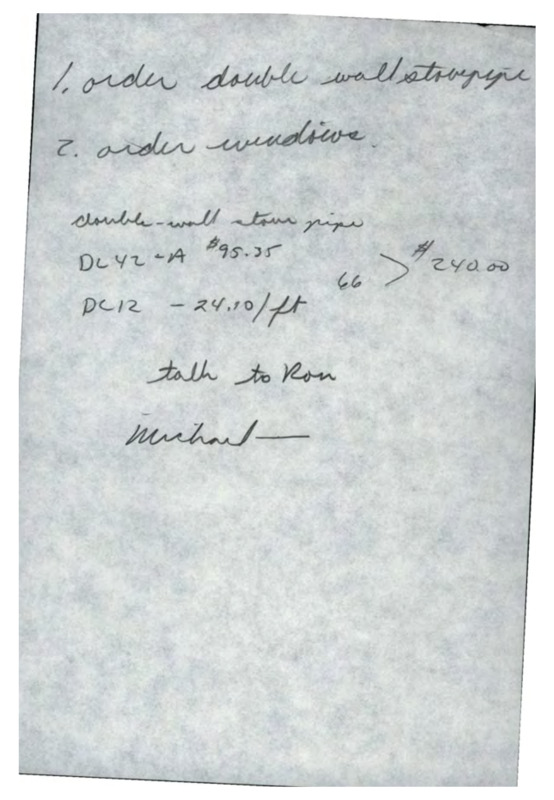 1. order double wall stovepipe
2. order windows.
double-wall stove pipe
DL42-A $95.35
66 > $240.00
DL12 - 24.10/ft
talk to Ron
Michael —